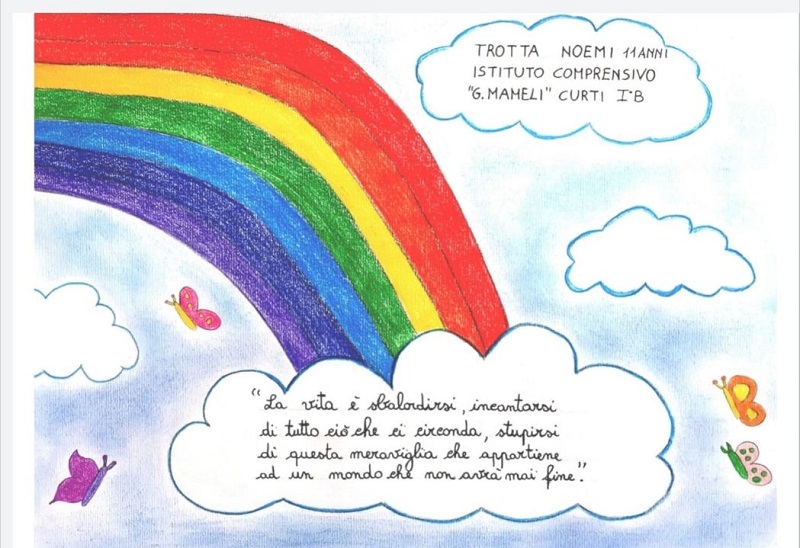 TROTTA NOEMI 11 ANNI
ISTITUTO COMPRENSIVO
"G. MAMELI" CURTI I°B
"La vita è sbalordirsi, incantarsi
di tutto ciò che ci circonda, stupirsi
di questa meraviglia che appartiene
ad un mondo che non avrà mai fine".